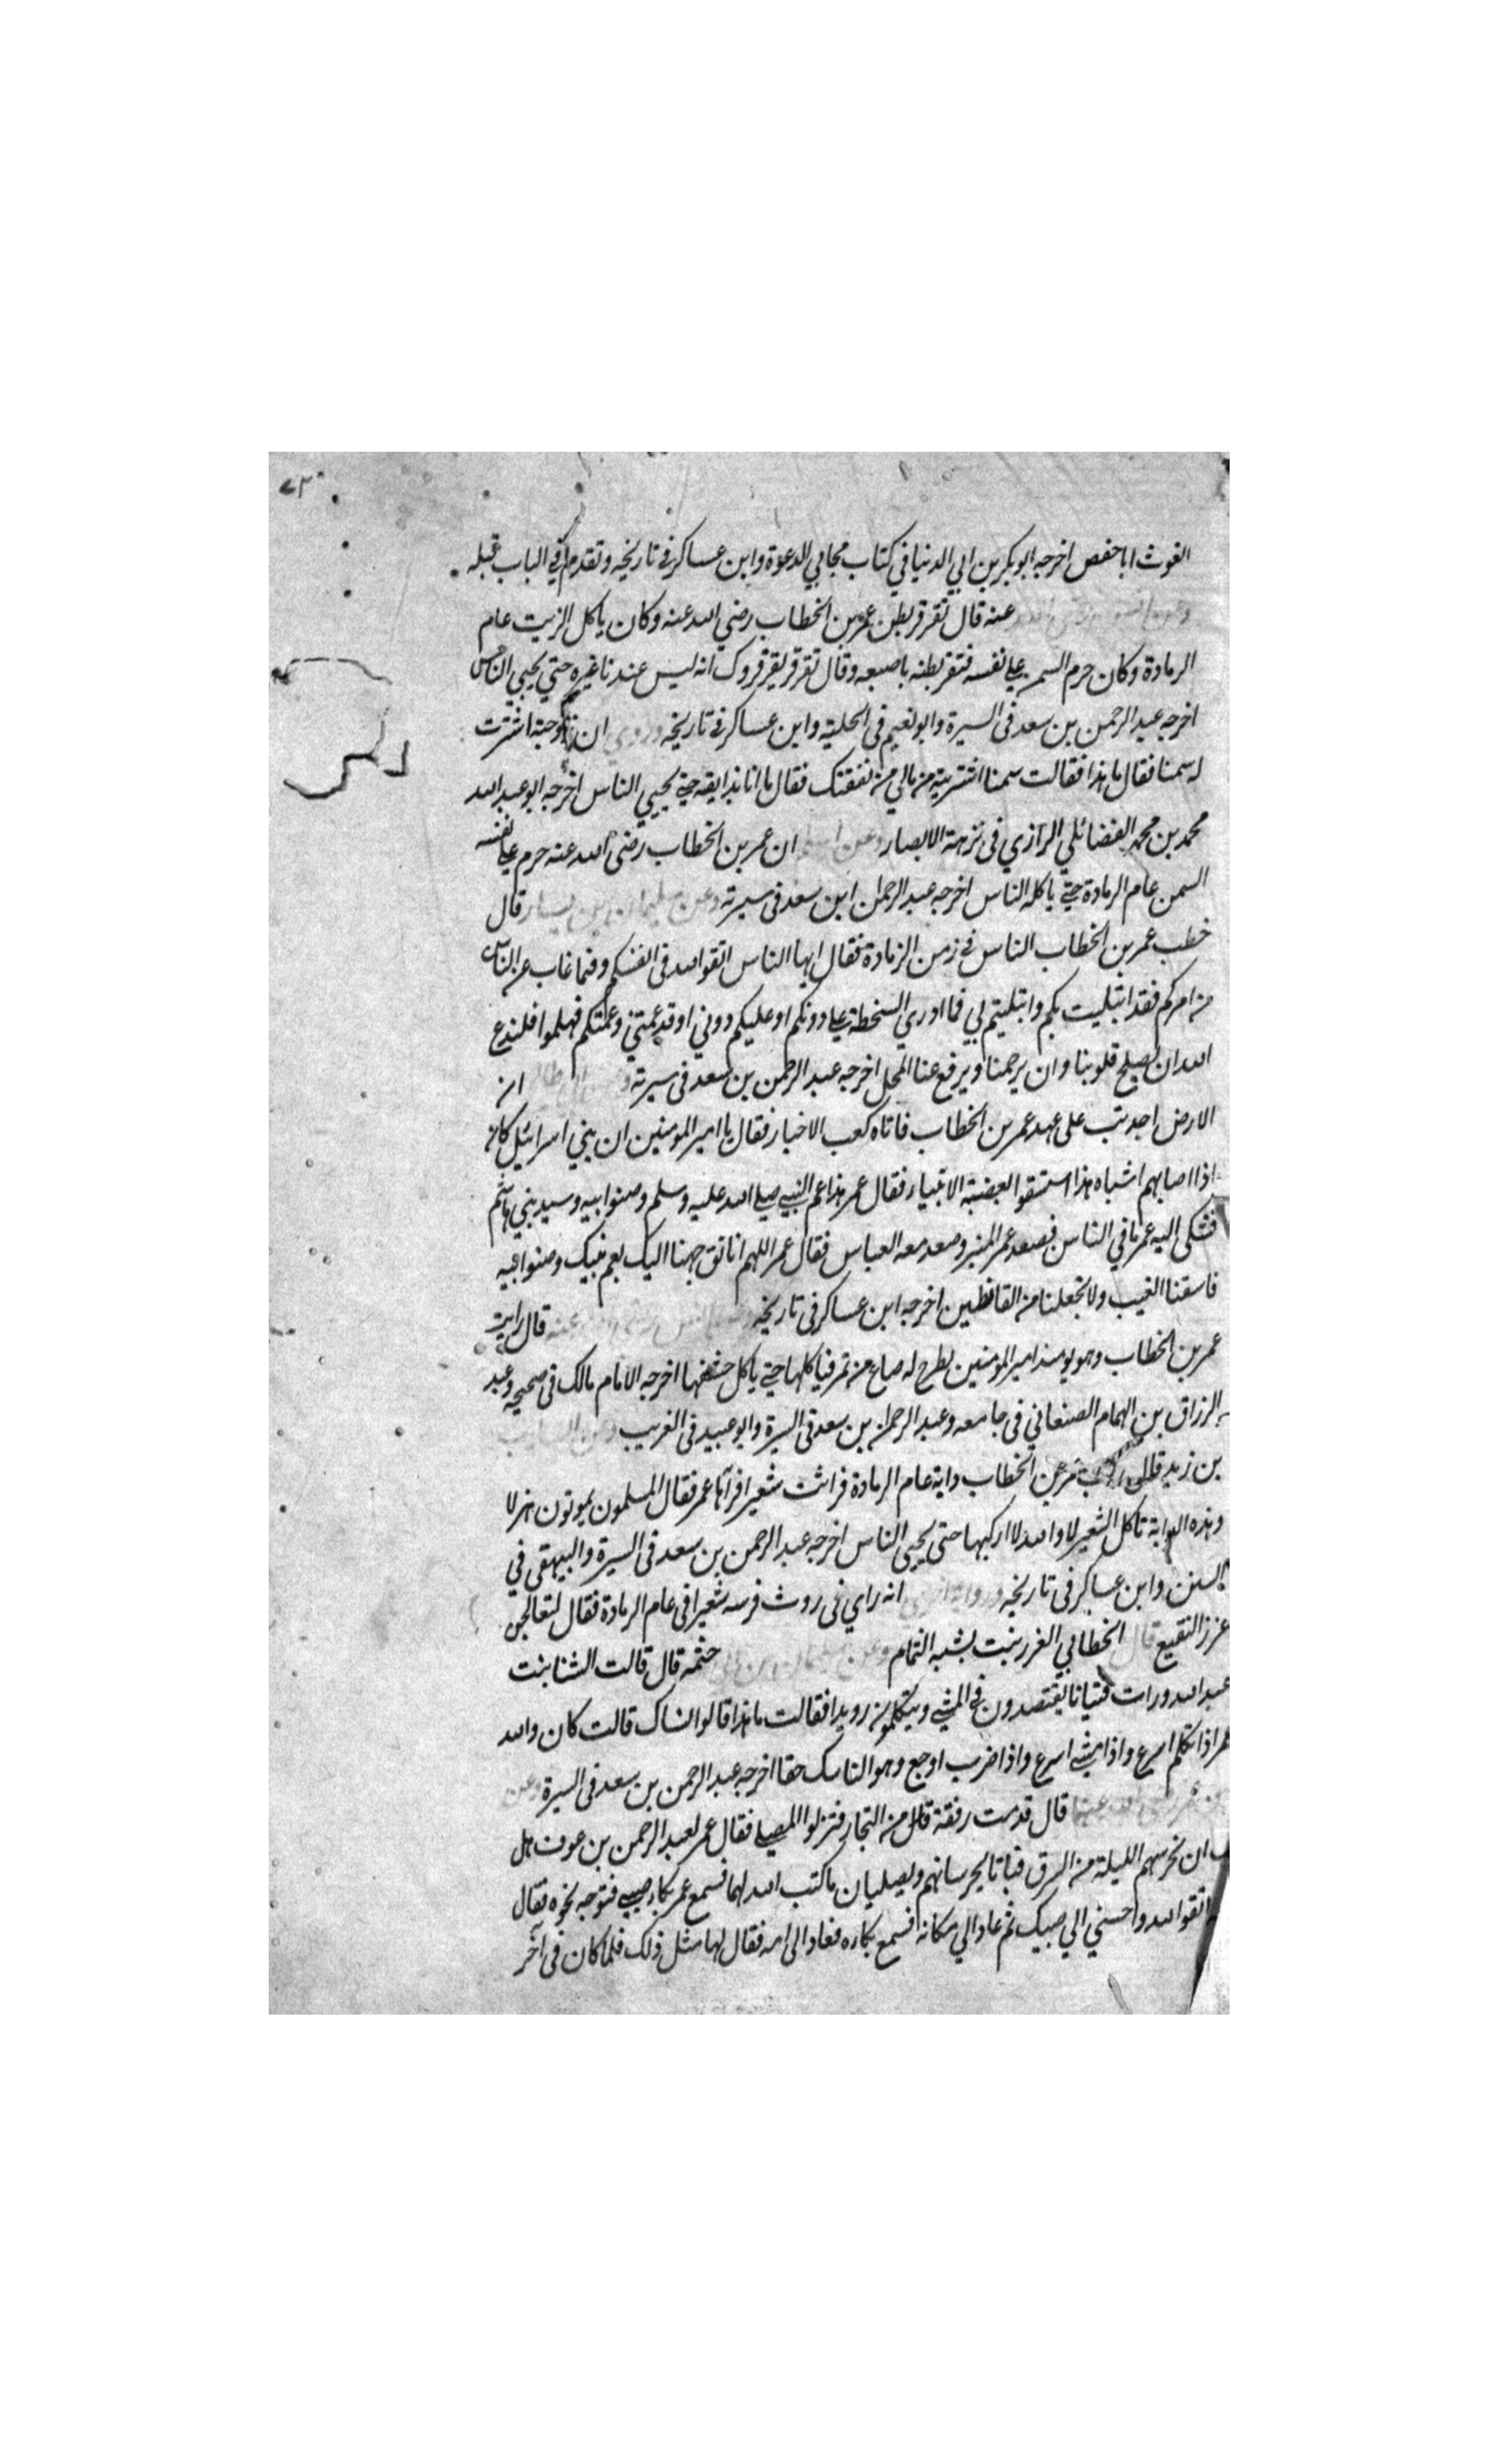 ٧٣
الغوث اباحفص اخرجه ابوبكر بن ابي الدنيا في كتاب مجابي الدعوة وابن عساكر في تاريخه وتقدم في الباب قبله
وعن انس رضي الله عنه قال تقرقر بطن عمر بن الخطاب رضي الله عنه وكان ياكل الزيت عام
الرمادة وكان حرم السمن علي نفسه فنقر بطنه باصبعه وقال تقرقر تقرقروك انه ليس عندنا غيره حتي يحيي الناس
اخرجه عبد الرحمن بن سعد في السيرة وابو نعيم في الحلية وابن عساكر في تاريخه وروي ان زوجته اشترت
له سمنا فقال ما هذا فقالت سمنا اشتريته من مالي من نفقتك فقال ما انا بذايقه حتي يحيي الناس اخرجه ابو عبد الله
محمد بن محمد الفضائلي الرازي في نزهة الابصار وعن اسلم ان عمر بن الخطاب رضي الله عنه حرم علي نفسه
السمن عام الرمادة حتي ياكله الناس اخرجه عبد الرحمن ابن سعد في سيرته وعن سليمان بن يسار قال
خطب عمر بن الخطاب الناس في زمن الرمادة فقال ايها الناس اتقوا الله في انفسكم وفيما غاب عن الناس
من امركم فقد ابتليت بكم وابتليتم بي فما ادري السخطة علي دونكم او عليكم دوني او قد عمتني وعمتكم فهلموا فلندع
الله ان يصلح قلوبنا وان يرحمنا ويرفع عنا المحل اخرجه عبد الرحمن بن سعد في سيرته ان
الارض اجدبت على عهد عمر بن الخطاب فاتاه كعب الاخبار فقال يا امير المومنين ان بني اسرائيل كان
اذا اصابهم اشباه هذا استسقوا بعصبة الانبياء فقال عمر هذا عم النبي صلي الله عليه وسلم وصنو ابيه وسيد بني هاشم
فشكى اليه عمر ما في الناس فصعد عمر المنبر وصعد معه العباس فقال عمر اللهم انا توجهنا اليك بعم نبيك وصنو ابيه
فاسقنا الغيب ولا تجعلنا من القانطين اخرجه ابن عساكر في تاريخه وعن انس رضي الله عنه قال رايت
عمر بن الخطاب وهو يومئذ امير المومنين يطرح له صاع من تمر فياكلها حتي ياكل حشفها اخرجه الامام مالك في صحيحه وعبد
الرزاق بن الهمام الصنعاني في جامعه وعبد الرحمن بن سعد في السيرة وابو عبيد في الغريب وعن السايب
بن زيد قال ركب عمر بن الخطاب دابة عام الرمادة فراثت شعيرا فراها عمر فقال المسلمون يموتون هزلا
وهذه الدابة تاكل الشعير لا والله لا اركبها حتى يحيى الناس اخرجه عبد الرحمن بن سعد في السيرة والبيهقي في
السنن وابن عساكر في تاريخه ورواية اخرى انه راي في روث فرسه شعيرا في عام الرمادة فقال لتعالجن
غرز النقيع قال الخطابي الغرز نبت يشبه الثمام وعن سليمان بن ابي حثمه قال قالت الشفا بنت
عبد الله ورات فتيانا يقتصدون في المشي ويتكلمون رويدا فقالت ما هذا قالوا نساك قالت كان والله
عمر اذا تكلم اسرع واذا مشي اسرع واذا ضرب اوجع وهو الناسك حقا اخرجه عبد الرحمن بن سعد في السيرة وعن
بن عمر رضي الله عنهما قال قدمت رفقة من التجار فنزلوا المصلي فقال عمر لعبد الرحمن بن عوف هل
ان نحرسهم الليلة من السرق فباتا يحرسانهم ويصليان ما كتب الله لهما فسمع عمر بكاء صبي فتوجه نحوه فقال
اتقوا الله واحسني الي صبيك ثم عاد الي مكانه فسمع بكاءه فعاد الى امه فقال لها مثل ذلك فلما كان في آخر